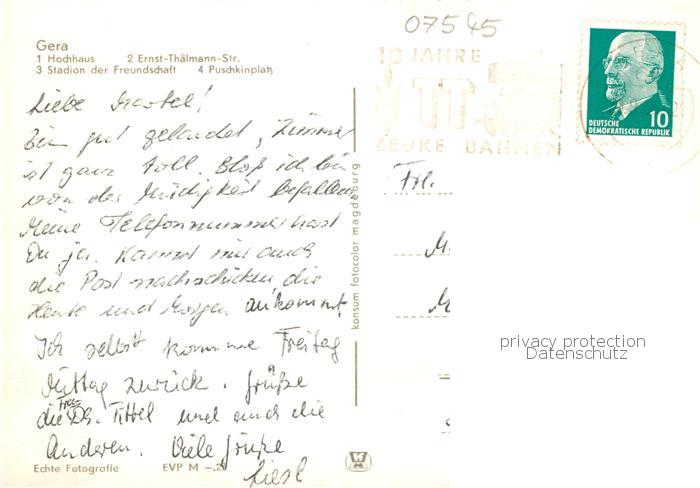 07545
Gera
1 Hochhaus 2 Ernst-Thälmann-Str.
3 Stadion der Freundschaft 4 Puschkinplatz
10 JAHRE
TT
ZEUKE BAHNEN
DEUTSCHE
DEMOKRATISCHE REPUBLIK
10
Liebe !
Bin gut gelandet, Zimmer
ist ganz toll. Bloß ich bin
von der Müdigkeit befallen
Meine Telefonnummer hast
Du ja. Kannst mir auch
die Post nachschicken, die
Heute und Morgen ankommt.
Ich selbst komme Freitag
Mittag zurück. Grüße
die Frau Dr. Tittel und auch die
Anderen. Viele Grüße
Liesl
konsum fotocolor magdeburg
Frl.
M
M
privacy protection
Datenschutz
Echte Fotografie EVP M -.2